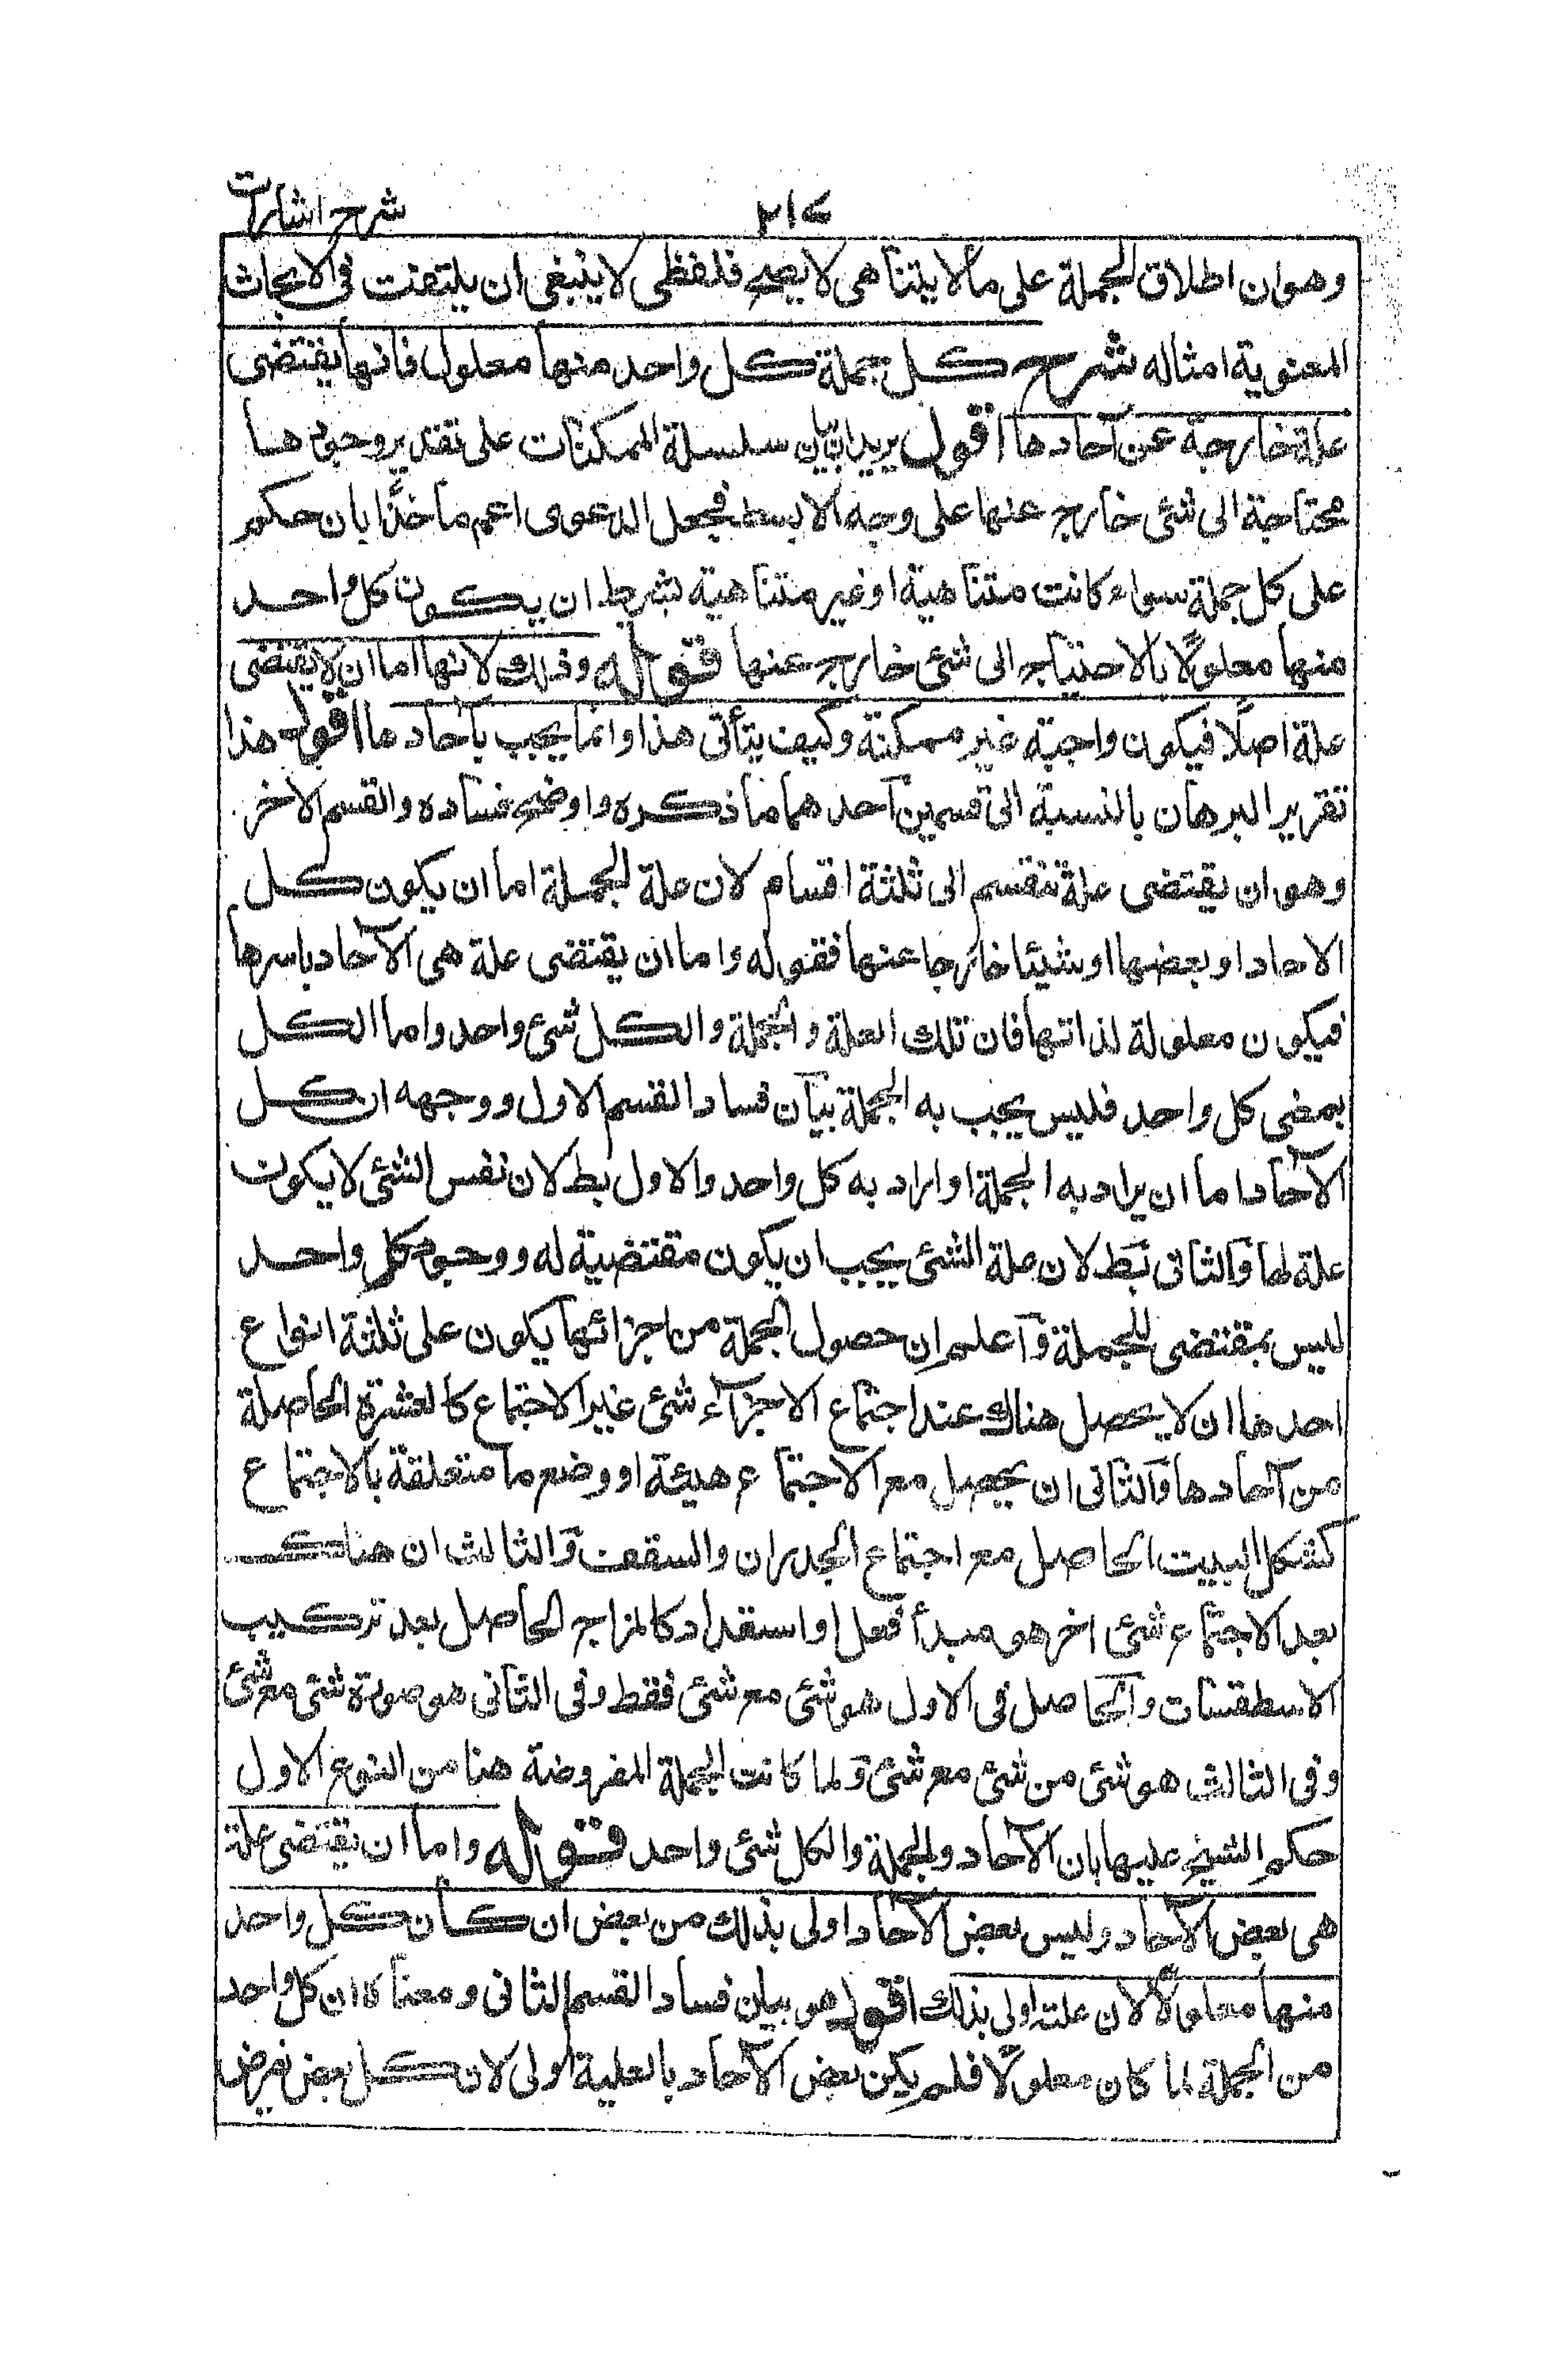 شرح اشارات
٢١٤
وهو ان اطلاق الجملة على ما لا يتناهى لا يصح فلفظى لا ينبغى ان يلتفت فى الابحاث
المعنوية امثاله شرح كل جملة كل واحد منها معلول فانها يقتضى
علة خارجة عن آحادها اقول يريد اثبات سلسلة الممكنات على تقدير وجودها
محتاجة الى شئ خارج عنها على وجه الابسط فجعل الدعوى اعم ماخذا بان حكم
على كل جملة سواء كانت متناهية او غير متناهية بشرط ان يكون كل واحد
منها معلولًا بالاحتياج الى شئ خارج عنها قوله وذلك لانها اما ان لا يقتضى
علة اصلًا فيكون واجبة غير ممكنة وكيف يتأتى هذا وانما يجب بآحادها اقول هذا
تقرير البرهان بالنسبة الى قسمين آحدهما ما ذكره واوضح فساده والقسم الاخر
وهو ان يقتضى علة تنقسم الى ثلثة اقسام لان علة الجملة اما ان يكون كل
الاحاد او بعضها او شيئا خارجا عنها فقوله واما ان يقتضى علة هى الآحاد باسرها
فيكون معلولة لذاتها فان تلك العلة والجملة والكل شئ واحد واما الكل
بمعنى كل واحد فليس يجب به الجملة بيان فساد القسم الاول ووجهه ان كل
الآحاد اما ان يراد به الجملة او اراد به كل واحد والاول بط لان نفس الشئ لا يكون
علة لها وآلثانى بط لان علة الشئ يجب ان يكون مقتضية له ووجود كل واحد
ليس بمقتضى للجملة وآعلم ان حصول الجملة من اجزائها يكون على ثلثة انواع
احدها ان لا يحصل هناك عند اجتماع الاجزاء شئ غير الاجتماع كالعشرة الحاصلة
من آحادها وآلثانى ان يحصل مع الاجتماع هيئة او وضع ما متعلقة بالاجتماع
كشكل البيت الحاصل مع اجتماع الجدران والسقف وآلثالث ان هناك
بعد الاجتماع شئ اخر هو مبدأ فعل او استعداد كالمزاج الحاصل بعد تركيب
الاسطقسات وآلحاصل فى الاول هو شئ مع شئ فقط وفى الثانى هو صورة شئ مع شئ
وفى الثالث هو شئ من شئ مع شئ وٓلما كانت الجملة المفروضة هنا من النوع الاول
حكم الشيخ عليها بان الآحاد والجملة والكل شئ واحد قوله واما ان يقتضى علة
هى بعض الآحاد وليس بعض الآحاد اولى بذلك من بعض ان كان كل واحد
منها معلولًا لان علته اولى بذلك اقول هو بيان فساد القسم الثانى ومعناه ان كل واحد
من الجملة لما كان معلولًا فلم يكن بعض الآحاد بالعلية اولى لان كل بعض نفرض